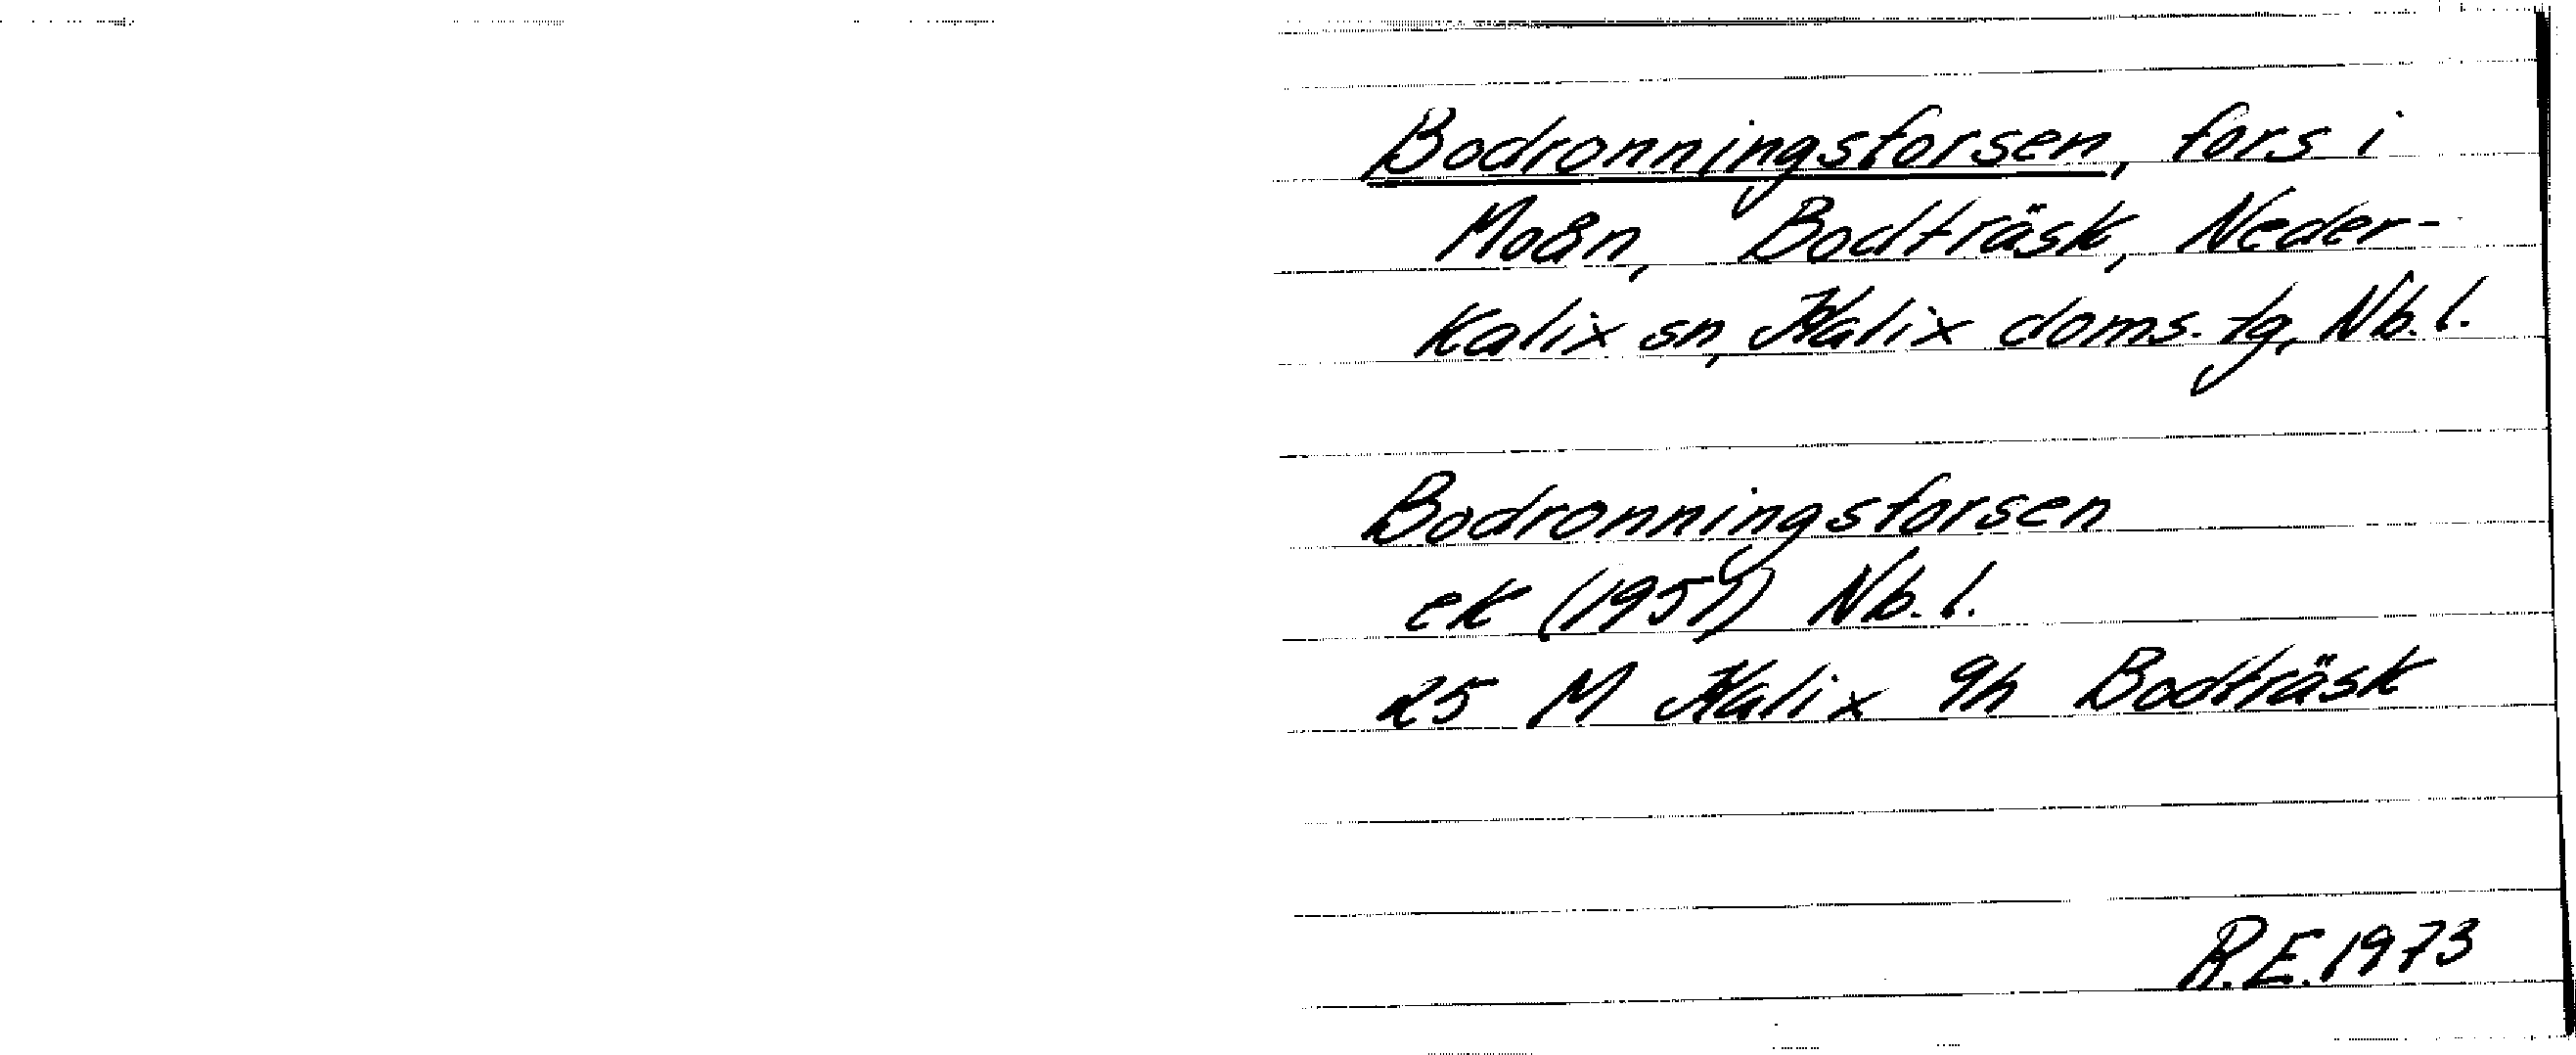 Bodronningsforsen, fors i
Moån, Bodträsk, Neder-
Kalix sn, Kalix doms. tg, Nb. l.
Bodronningsforsen
ek (1951) Nb. l.
25 M Kalix 9h Bodträsk
R.E. 1973